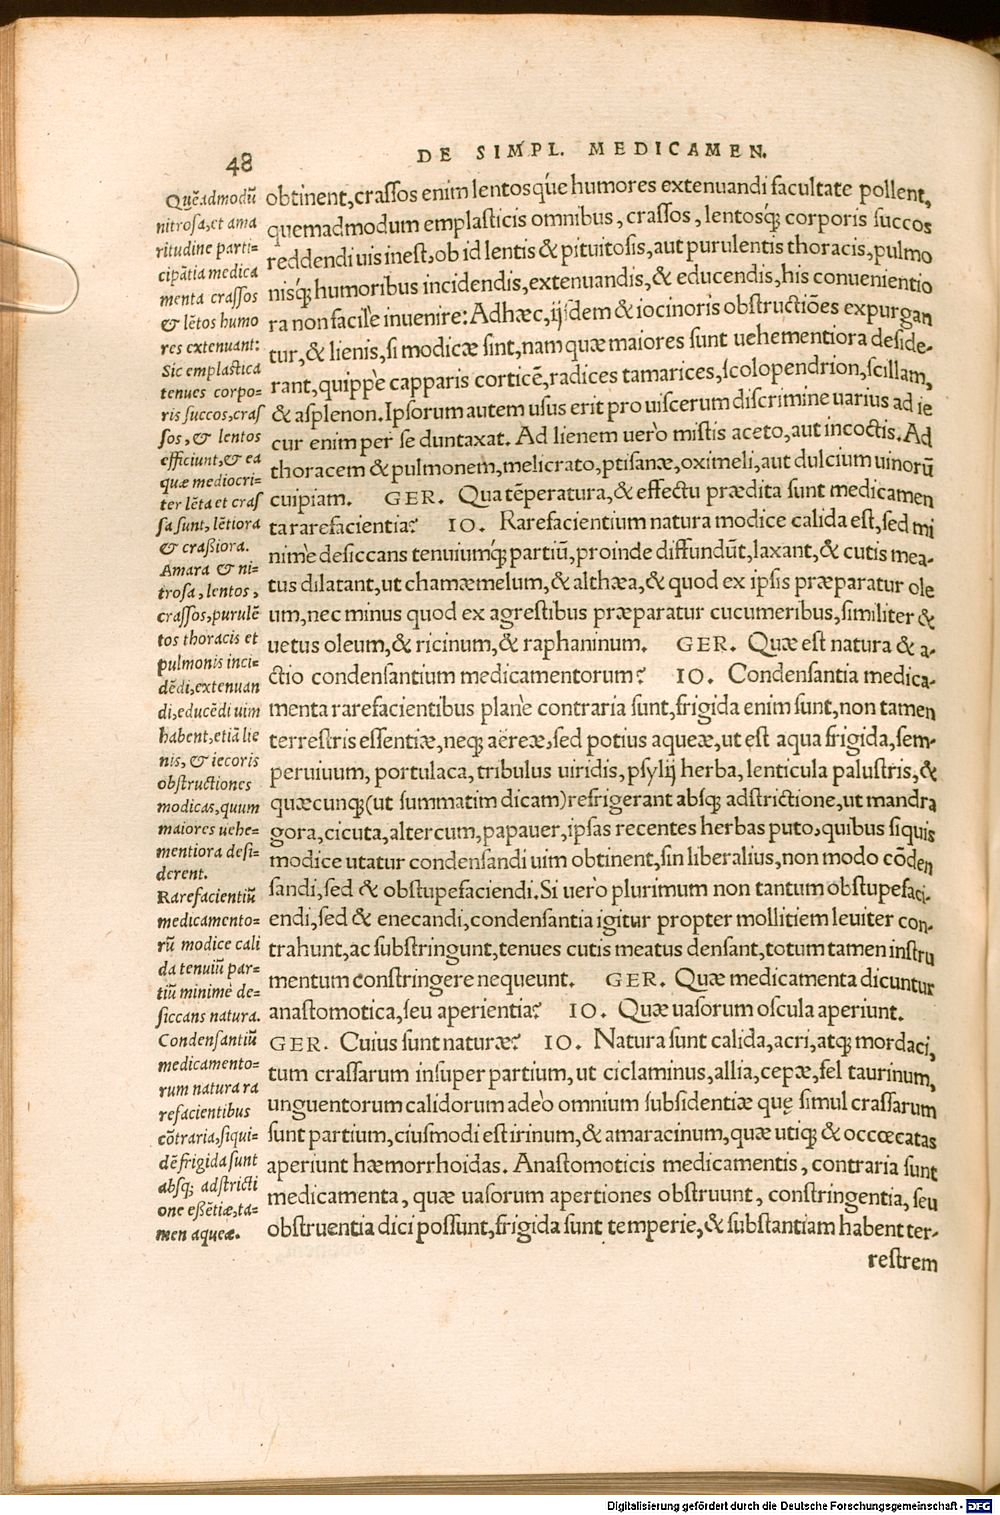 48
DE SIMPL. MEDICAMEN.
Quẽadmodũ
nitrosa, et ama
ritudine parti=
cipãtia medica
menta crassos
& lẽtos humo
res extenuant:
Sic emplastica
tenues corpo=
ris succos, cras
sos, & lentos
efficiunt, & ea
quæ mediocri=
ter lẽta et cras
sa sunt, lẽtiora
& craßiora.
Amara & ni=
trosa, lentos,
crassos, purulẽ
tos thoracis et
pulmonis inci=
dẽdi, extenuan
di, educẽdi uim
habent, etiã lie
nis, & iecoris
obstructiones
modicas, quum
maiores uehe=
mentiora desi=
derent.
Rarefacientiũ
medicamento=
rũ modice cali
da tenuiũ par=
tiũ minimè de=
siccans natura.
Condensantiũ
medicamento=
rum natura ra
refacientibus
cõtraria, siqui=
dẽ frigida sunt
absq; adstricti
one eßẽtiæ, ta=
men aqueæ.
obtinent, crassos enim lentosq́ue humores extenuandi facultate pollent,
quemadmodum emplasticis omnibus, crassos, lentosq́; corporis succos
reddendi uis inest, ob id lentis & pituitosis, aut purulentis thoracis, pulmo
nisq́; humoribus incidendis, extenuandis, & educendis, his conuenientio
ra non facilè inuenire: Adhæc, ijsdem & iocinoris obstructiões expurgan
tur, & lienis, si modicæ sint, nam quæ maiores sunt uehementiora deside-
rant, quippè capparis corticẽ, radices tamarices, scolopendrion, scillam,
& asplenon. Ipsorum autem usus erit pro uiscerum discrimine uarius ad ie
cur enim per se duntaxat. Ad lienem uerò mistis aceto, aut incoctis. Ad
thoracem & pulmonem, melicrato, ptisanæ, oximeli, aut dulcium uinorũ
cuipiam. GER. Qua tẽperatura, & effectu prædita sunt medicamen
ta rarefacientia? IO. Rarefacientium natura modice calida est, sed mi
nimè desiccans tenuiumq́; partiũ, proinde diffundũt, laxant, & cutis mea-
tus dilatant, ut chamæmelum, & althæa, & quod ex ipsis præparatur ole
um, nec minus quod ex agrestibus præparatur cucumeribus, similiter &
uetus oleum, & ricinum, & raphaninum. GER. Quæ est natura & a-
ctio condensantium medicamentorum? IO. Condensantia medica-
menta rarefacientibus planè contraria sunt, frigida enim sunt, non tamen
terrestris essentiæ, neq; aëreæ, sed potius aqueæ, ut est aqua frigida, sem-
peruiuum, portulaca, tribulus uiridis, psylij herba, lenticula palustris, &
quæcunq; (ut summatim dicam) refrigerant absq; adstrictione, ut mandra
gora, cicuta, altercum, papauer, ipsas recentes herbas puto, quibus siquis
modice utatur condensandi uim obtinent, sin liberalius, non modo cõden
sandi, sed & obstupefaciendi. Si uerò plurimum non tantum obstupefaci-
endi, sed & enecandi, condensantia igitur propter mollitiem leuiter con-
trahunt, ac substringunt, tenues cutis meatus densant, totum tamen instru
mentum constringere nequeunt. GER. Quæ medicamenta dicuntur
anastomotica, seu aperientia? IO. Quæ uasorum oscula aperiunt.
GER. Cuius sunt naturæ? IO. Natura sunt calida, acri, atq; mordaci,
tum crassarum insuper partium, ut ciclaminus, allia, cepæ, fel taurinum,
unguentorum calidorum adeò omnium subsidentiæ quę simul crassarum
sunt partium, ciusmodi est irinum, & amaracinum, quæ utiq; & occœcatas
aperiunt hæmorrhoidas. Anastomoticis medicamentis, contraria sunt
medicamenta, quæ uasorum apertiones obstruunt, constringentia, seu
obstruentia dici possunt, frigida sunt temperie, & substantiam habent ter-
restrem
Digitalisierung gefördert durch die Deutsche Forschungsgemeinschaft - DFG